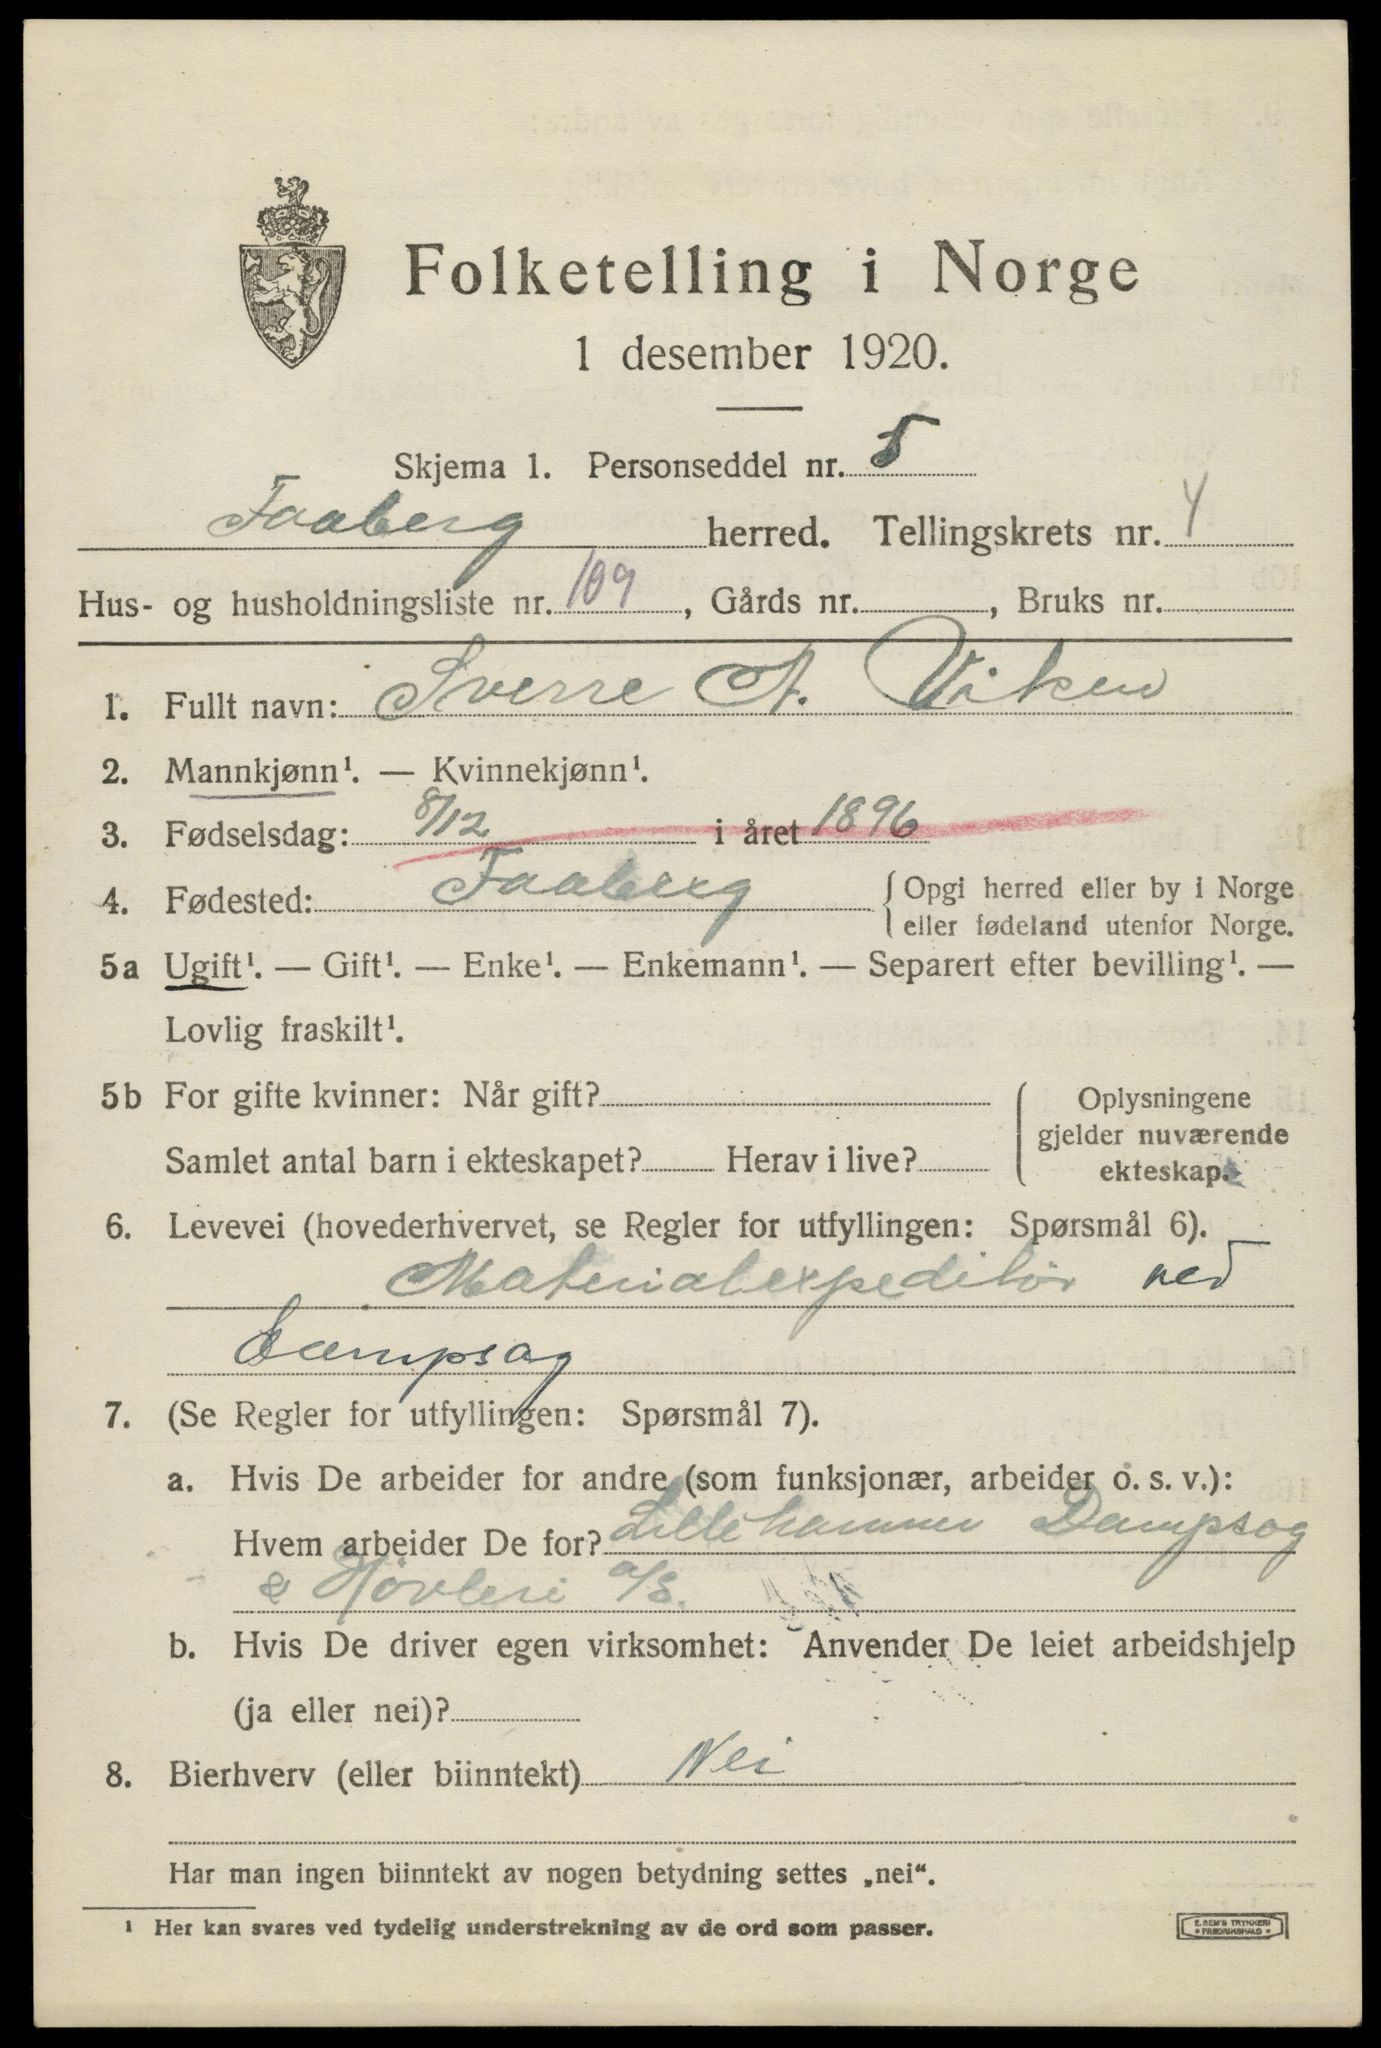 Folketelling i Norge
1 desember 1920.
Skjema 1. Personseddel nr. 5
Faaberg herred. Tellingskrets nr. 4
Hus- og husholdningsliste nr. 109, Gårds nr. , Bruks nr.
1. Fullt navn: Sverre A. Viken
2. Mannkjønn¹. — Kvinnekjønn¹.
3. Fødselsdag: 8/12 i året 1896
4. Fødested: Faaberg {Opgi herred eller by i Norge
eller fødeland utenfor Norge.
5a Ugift¹. — Gift¹. — Enke¹. — Enkemann¹. — Separert efter bevilling¹. —
Lovlig fraskilt¹.
5b For gifte kvinner: Når gift?
Samlet antal barn i ekteskapet? Herav i live?
Oplysningene
gjelder nuværende
ekteskap.
6. Levevei (hovederhvervet, se Regler for utfyllingen: Spørsmål 6).
Materialexpeditör ved
Dampsag
7. (Se Regler for utfyllingen: Spørsmål 7).
a. Hvis De arbeider for andre (som funksjonær, arbeider o. s. v.):
Hvem arbeider De for? Lillehammer Dampsag
& Hövleri a/s.
b. Hvis De driver egen virksomhet: Anvender De leiet arbeidshjelp
(ja eller nei)?
8. Bierhverv (eller biinntekt) Nei
Har man ingen biinntekt av nogen betydning settes „nei“.
¹ Her kan svares ved tydelig understrekning av de ord som passer.
E. SEM'S TRYKKERI
FREDRIKSHALD